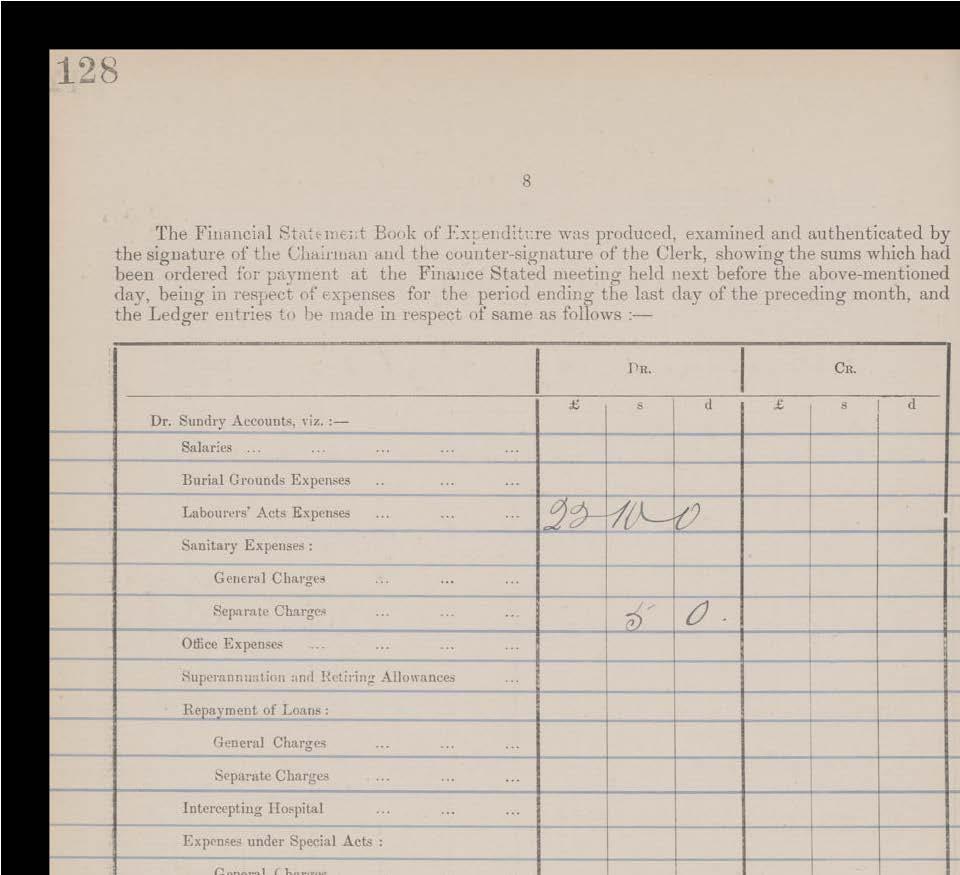 128
8
The Financial Statement Book of Expenditure was produced, examined and authenticated by
the signature of the Chairman and the counter-signature of the Clerk, showing the sums which had
been ordered for payment at the Finance Stated meeting held next before the above-mentioned
day, being in respect of expenses for the period ending the last day of the preceding month, and
the Ledger entries to be made in respect of same as follows :—
DR. CR.
£ s d £ s d
Dr. Sundry Accounts, viz. :—
Salaries ... ... ... ... ...
Burial Grounds Expenses .. ... ...
Labourers' Acts Expenses ... ... ... 10 0
Sanitary Expenses :
General Charges ... ... ...
Separate Charges ... ... ... 5 0 .
Office Expenses ... ... ... ...
Superannuation and Retiring Allowances ...
Repayment of Loans :
General Charges ... ... ...
Separate Charges ... ... ...
Intercepting Hospital ... ... ...
Expenses under Special Acts :
General Charges